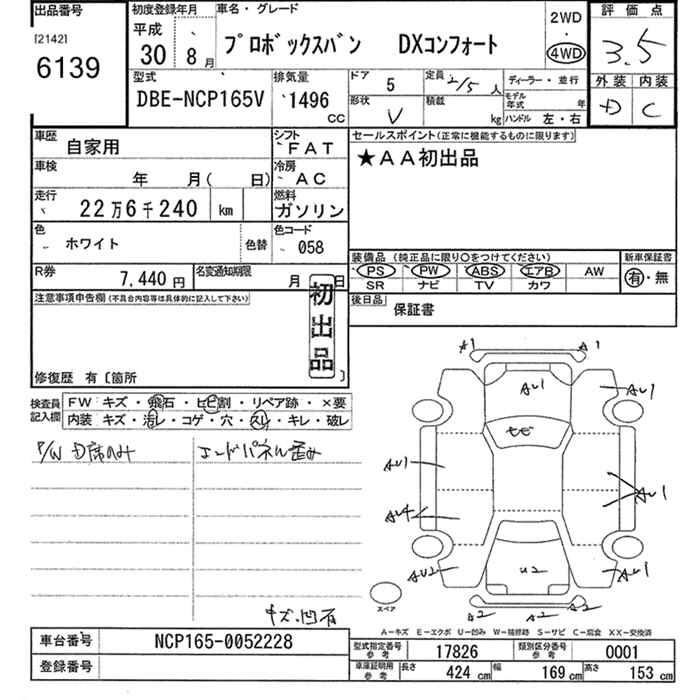 出品番号
[2142]
6139
初度登録年月
平成
30 8月
車名・グレード
プロボックスバン DXコンフォート
2WD
・
4WD
評価点
3.5
型式
DBE-NCP165V
排気量
1496
CC
ドア
5
定員 2/5 人
形状
V
積載
kg
ディーラー・並行
モデル年式 年
ハンドル 左・右
外装 内装
D C
車歴
自家用
シフト
FAT
車検
年 月( 日)
冷房
AC
走行
22万6千240 km
燃料
ガソリン
色
ホワイト
色替
色コード
058
R券
7,440円
名変通知期限
月 日
セールスポイント(正常に機能するものに限ります)
★AA初出品
装備品 (純正品に限り○をつけてください)
PS PW ABS エアB AW
SR ナビ TV カワ
新車保証書
有・無
後日品
保証書
注意事項申告欄 (不具合内容等は具体的に記入して下さい)
初出品
修復歴 有〔箇所 〕
検査員記入欄
FW キズ・飛石・ヒビ割・リペア跡・×要
内装 キズ・汚レ・コゲ・穴・スレ・キレ・破レ
P/W D席のみ
エンドパネル歪み
キズ、凹有
A1 A1
AU1 AU1
ヒビ
AU1 AU1
AU4
AU2 U2 AU1
A2 A2 A2
スペア
A―キズ E―エクボ U―凹み W―補修跡 S―サビ C―腐食 XX―交換済
車台番号
NCP165-0052228
登録番号
型式指定番号
参考
17826
類別区分番号
参考
0001
車庫証明用
参考
長さ 424 cm 幅 169 cm 高さ 153 cm